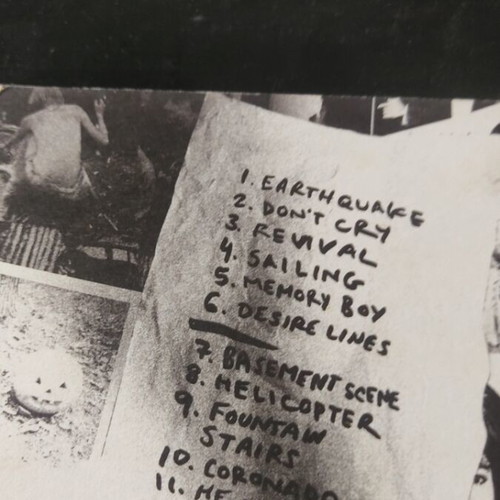 1. EARTHQUAKE
2. DON'T CRY
3. REVIVAL
4. SAILING
5. MEMORY BOY
6. DESIRE LINES
7. BASEMENT SCENE
8. HELICOPTER
9. FOUNTAIN
STAIRS
10. CORONADO
11. HE